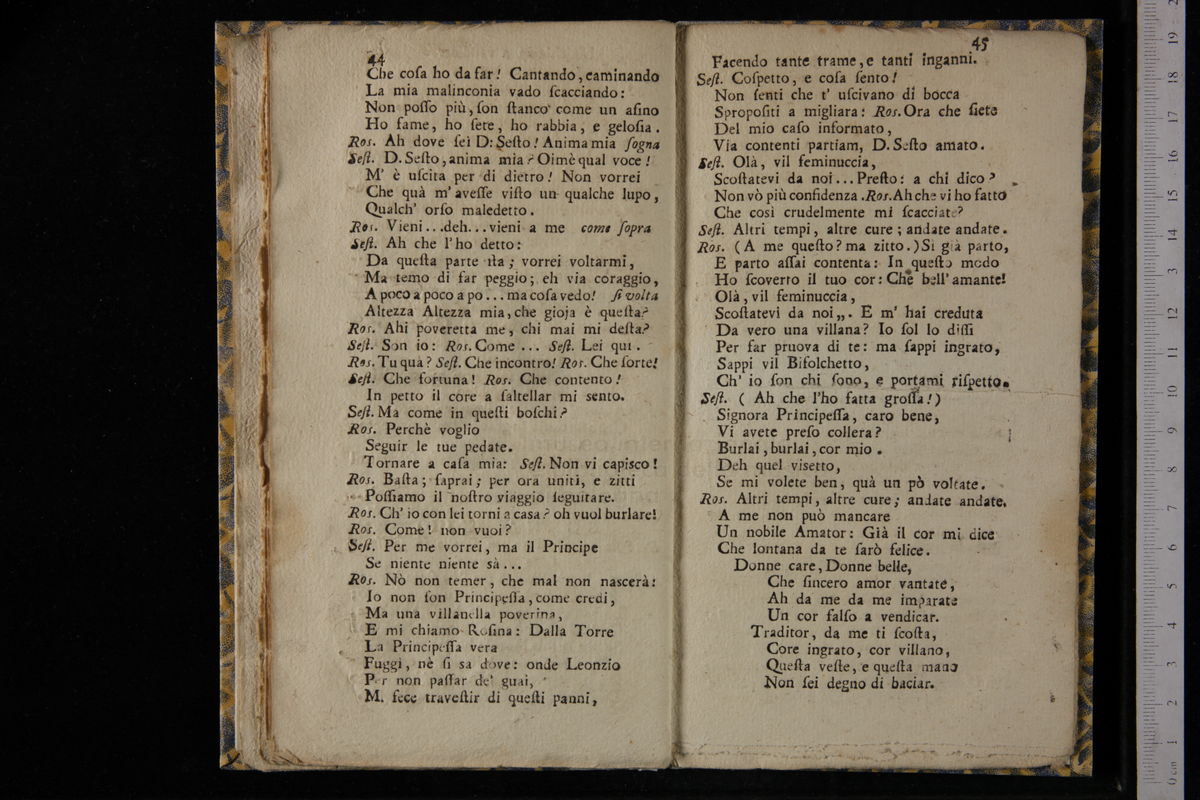 44
Che coſa ho da far! Cantando, caminando
La mia malinconia vado ſcacciando:
Non poſſo più, ſon ſtanco come un aſino
Ho fame, ho ſete, ho rabbia, e geloſia.
Ros. Ah dove ſei D: Seſto! Anima mia ſogna
Seſt. D. Seſto, anima mia? Oimè qual voce!
M' è uſcita per di dietro! Non vorrei
Che quà m' aveſſe viſto un qualche lupo,
Qualch' orſo maledetto.
Ros. Vieni...deh...vieni a me come ſopra
Seſt. Ah che l'ho detto:
Da queſta parte ſta; vorrei voltarmi,
Ma temo di far peggio; eh via coraggio,
A poco a poco a po... ma coſa vedo! ſi volta
Altezza Altezza mia, che gioja è queſta?
Ros. Ahi poveretta me, chi mai mi deſta?
Seſt. Son io: Ros. Come ... Seſt. Lei qui.
Ros. Tu quà? Seſt. Che incontro! Ros. Che ſorte!
Seſt. Che fortuna! Ros. Che contento!
In petto il core a ſaltellar mi sento.
Seſt. Ma come in queſti boſchi?
Ros. Perchè voglio
Seguir le tue pedate.
Tornare a caſa mia: Seſt. Non vi capisco!
Ros. Baſta; ſaprai; per ora uniti, e zitti
Poſſiamo il noſtro viaggio ſeguitare.
Ros. Ch' io con lei torni a casa? oh vuol burlare!
Ros. Come! non vuoi?
Seſt. Per me vorrei, ma il Principe
Se niente niente sà...
Ros. Nò non temer, che mal non nascerà:
Io non ſon Principeſſa, come credi,
Ma una villanella poverina,
E mi chiamo Roſina: Dalla Torre
La Principeſſa vera
Fuggì, nè ſi sa dove: onde Leonzio
Per non paſſar de' guai,
M. fece traveſtir di queſti panni,
45
Facendo tante trame, e tanti inganni.
Seſt. Coſpetto, e coſa ſento!
Non ſenti che t' uſcivano di bocca
Spropoſiti a migliara: Ros. Ora che ſiete
Del mio caſo informato,
Via contenti partiam, D. Seſto amato.
Seſt. Olà, vil feminuccia,
Scoſtatevi da noi... Preſto: a chi dico?
Non vò più confidenza. Ros. Ah che vi ho fatto
Che così crudelmente mi ſcacciate?
Seſt. Altri tempi, altre cure; andate andate.
Ros. (A me queſto? ma zitto.) Sì già parto,
E parto aſſai contenta: In queſto modo
Ho ſcoverto il tuo cor: Che bell' amante!
Olà, vil feminuccia,
Scoſtatevi da noi„. E m' hai creduta
Da vero una villana? Io ſol lo diſſi
Per far pruova di te: ma ſappi ingrato,
Sappi vil Bifolchetto,
Ch' io ſon chi ſono, e portami riſpetto.
Seſt. ( Ah che l'ho fatta groſſa!)
Signora Principeſſa, caro bene,
Vi avete preſo collera?
Burlai, burlai, cor mio.
Deh quel visetto,
Se mi volete ben, quà un pò voltate.
Ros. Altri tempi, altre cure; andate andate.
A me non può mancare
Un nobile Amator: Già il cor mi dice
Che lontana da te ſarò felice.
Donne care, Donne belle,
Che ſincero amor vantate,
Ah da me da me imparate
Un cor falſo a vendicar.
Traditor, da me ti ſcoſta,
Core ingrato, cor villano,
Queſta veſte, e queſta mano
Non ſei degno di baciar.